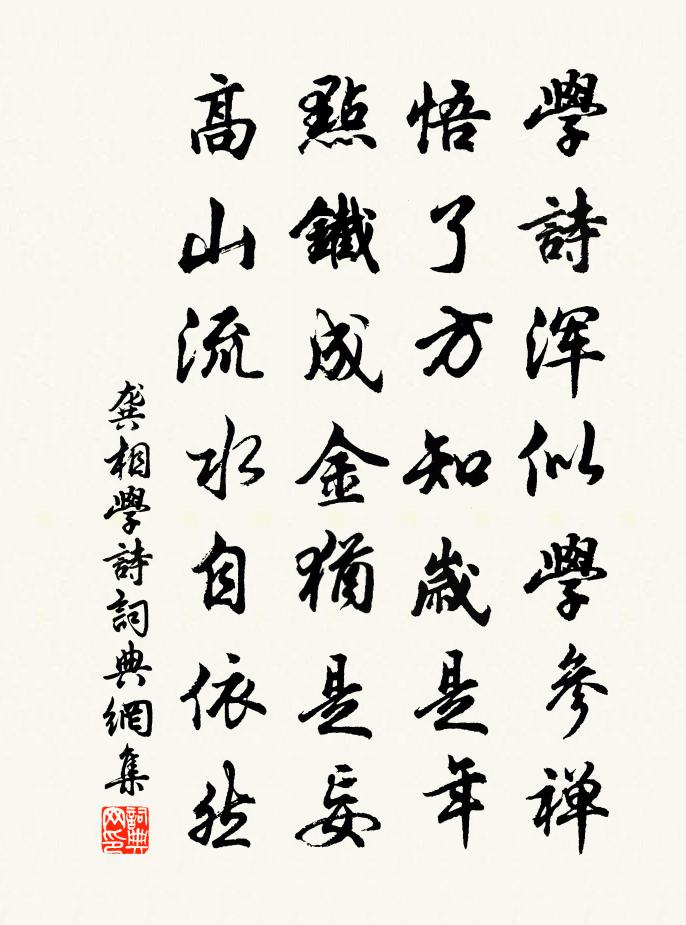 學詩渾似學參禪
悟了方知歲是年
點鐵成金猶是妄
高山流水自依然
龔相學詩詞典網集
詞典網印